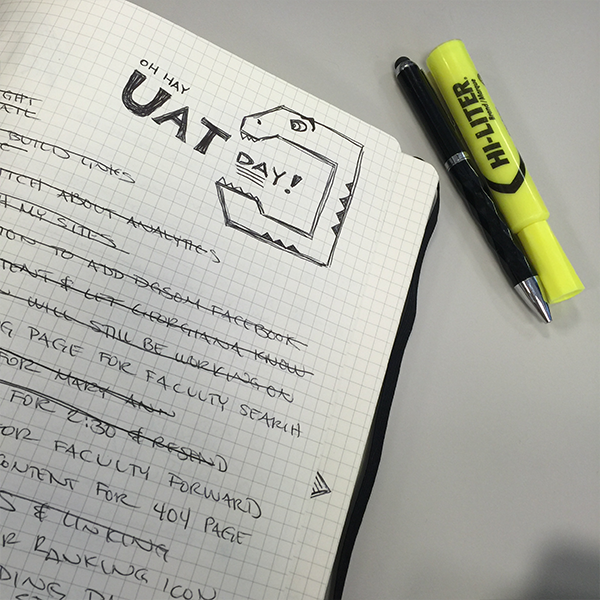 OH HAY
UAT
DAY!
BUILD LINKS
ABOUT ANALYTICS
MY SITES
TO ADD DGSOM FACEBOOK
& LET GEORGIANA KNOW
WILL STILL BE WORKING ON
PAGE FOR FACULTY SEARCH
FOR MARY ANN
FOR 2:30 & RESEND
FOR FACULTY FORWARD
CONTENT FOR 404 PAGE
& LINKING
RANKING ICON
HI-LITER